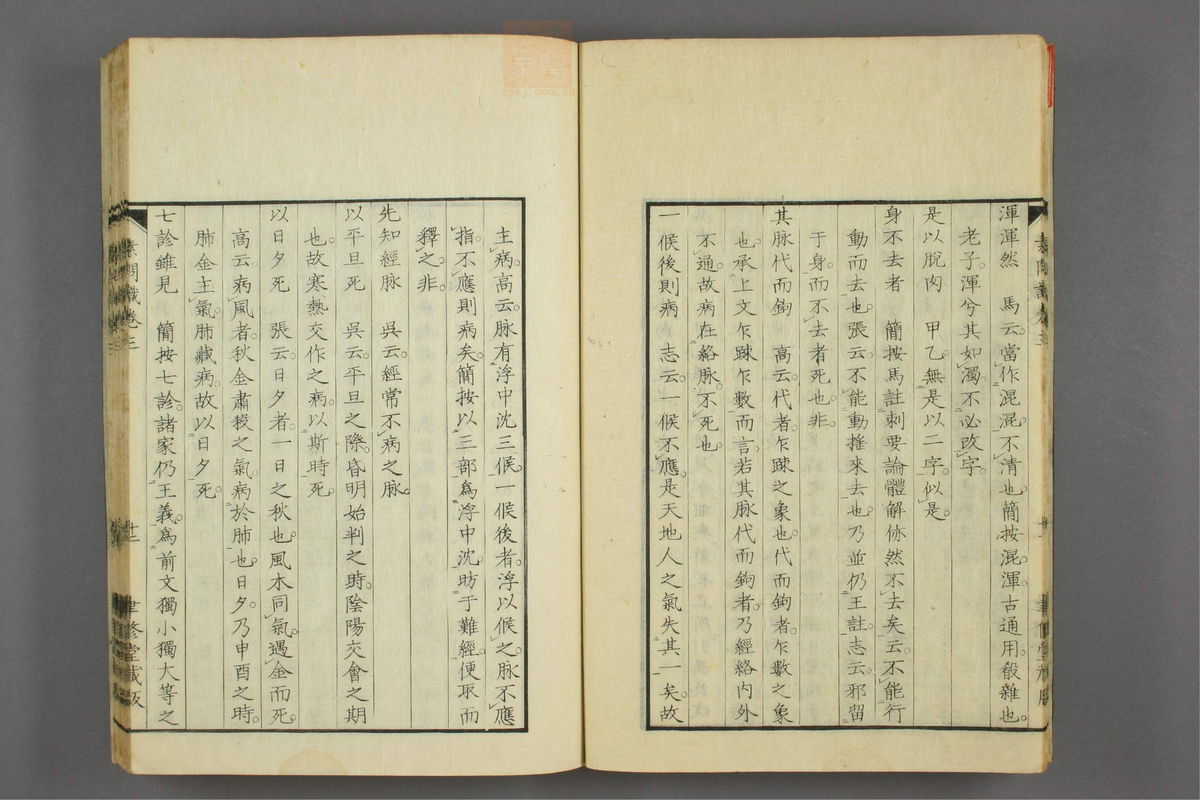 渾渾然　馬云。當作混混。不清也。簡按。混渾古通用。殽雜也。
老子。渾兮其如濁。不必改字。
是以脫肉　甲乙。無是以二字。似是。
身不去者　簡按馬註刺要論體解㑊然不去矣云。不能行
動而去也。張云。不能動搖來去也。乃並仍王註。志云。邪留
于身。而不去者死也。非。
其脉代而鉤　高云。代者。乍踈之象也。代而鉤者。乍數之象
也。承上文乍踈乍數而言。若其脉代而鉤者。乃經絡內外
不通。故病在絡脉。不死也。
一候後則病　志云。一候不應。是天地人之氣失其一矣。故
主病。高云。脉有浮中沈三候。一候後者。浮以候之。脉不應
指。不應則病矣。簡按以三部爲浮中沈。昉于難經。便取而
釋之。非。
先知經脉　吳云。經常不病之脉。
以平旦死　吳云。平旦之際。昏明始判之時。陰陽交會之期
也。故寒熱交作之病。以斯時死。
以日夕死　張云。日夕者。一日之秋也。風木同氣。遇金而死。
高云。病風者。秋金肅殺之氣。病於肺也。日夕。乃申酉之時。
肺金主氣。肺藏病。故以日夕死。
七診雖見　簡按七診。諸家仍王義。爲前文獨小獨大等之
素問識卷三
廿二
聿修堂藏版